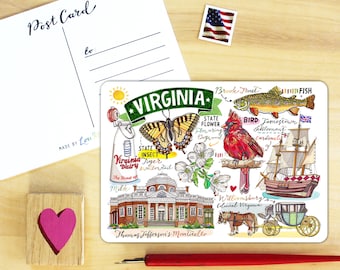 Post Card
to
MADE BY
VIRGINIA
STATE
FLOWER
STATE
INSECT
Tiger
Swallowtail
BIRD
Brook Trout
FISH
Jamestown
Settlement
Virginia
Dairy
Milk
Williamsburg
Colonial Virginia
Thomas Jefferson's Monticello